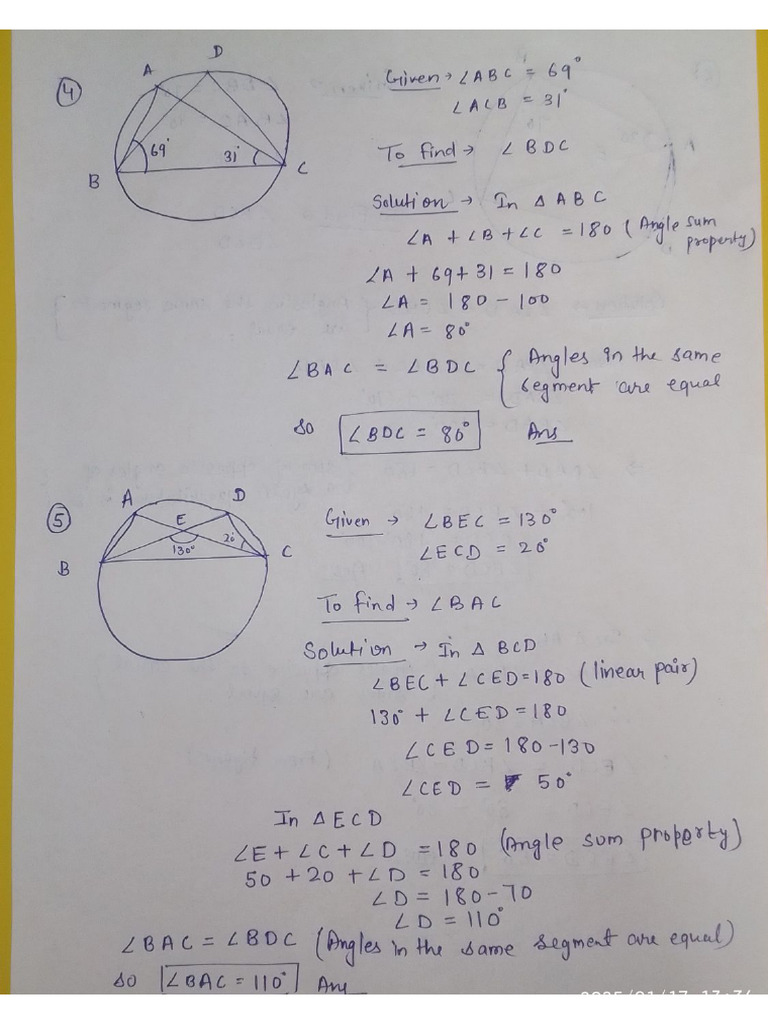 ④
A
D
69°
31°
B
C
Given → ∠ABC = 69°
∠ACB = 31°
To find → ∠BDC
Solution → In △ ABC
∠A + ∠B + ∠C = 180 (Angle sum
property)
∠A + 69 + 31 = 180
∠A = 180 - 100
∠A = 80°
∠BAC = ∠BDC { Angles in the same
segment are equal
so ∠BDC = 80° Ans
⑤
A
D
E
130°
20
B
C
Given → ∠BEC = 130°
∠ECD = 20°
To find → ∠BAC
Solution → In △ BCD
∠BEC + ∠CED = 180 (linear pair)
130° + ∠CED = 180
∠CED = 180 - 130
∠CED = 50°
In △ECD
∠E + ∠C + ∠D = 180 (Angle sum property)
50 + 20 + ∠D = 180
∠D = 180 - 70
∠D = 110°
∠BAC = ∠BDC (Angles in the same segment are equal)
so ∠BAC = 110° Ans